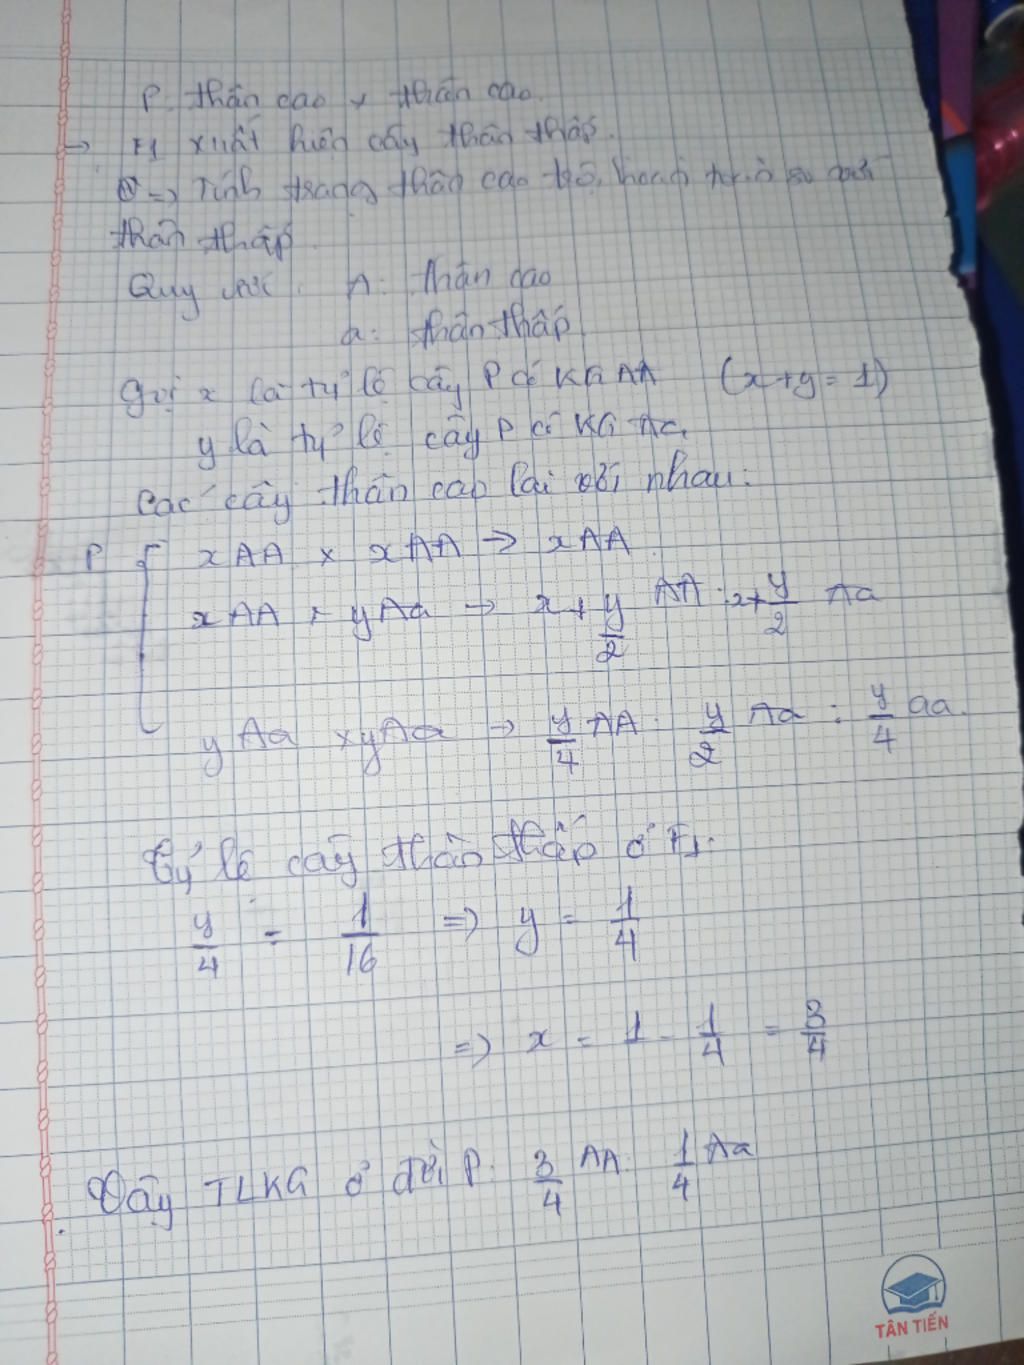 P: thân cao x thân cao.
→ F1 xuất hiện cây thân thấp.
=> Tính trạng thân cao trội hoàn toàn so với
thân thấp.
Quy ước: A: thân cao
a: thân thấp
Gọi x là tỷ lệ cây P có KG AA (x+y = 1)
y là tỷ lệ cây P có KG Aa.
Các cây thân cao lai với nhau:
P { xAA x xAA → xAA
xAA x yAa → x + y/2 AA : x + y/2 Aa
yAa x yAa → y/4 AA : y/2 Aa : y/4 aa.
Tỷ lệ cây thân thấp ở F1:
y/4 = 1/16 => y = 1/4
=> x = 1 - 1/4 = 3/4
Vậy TLKG ở đời P: 3/4 AA: 1/4 Aa
TÂN TIẾN